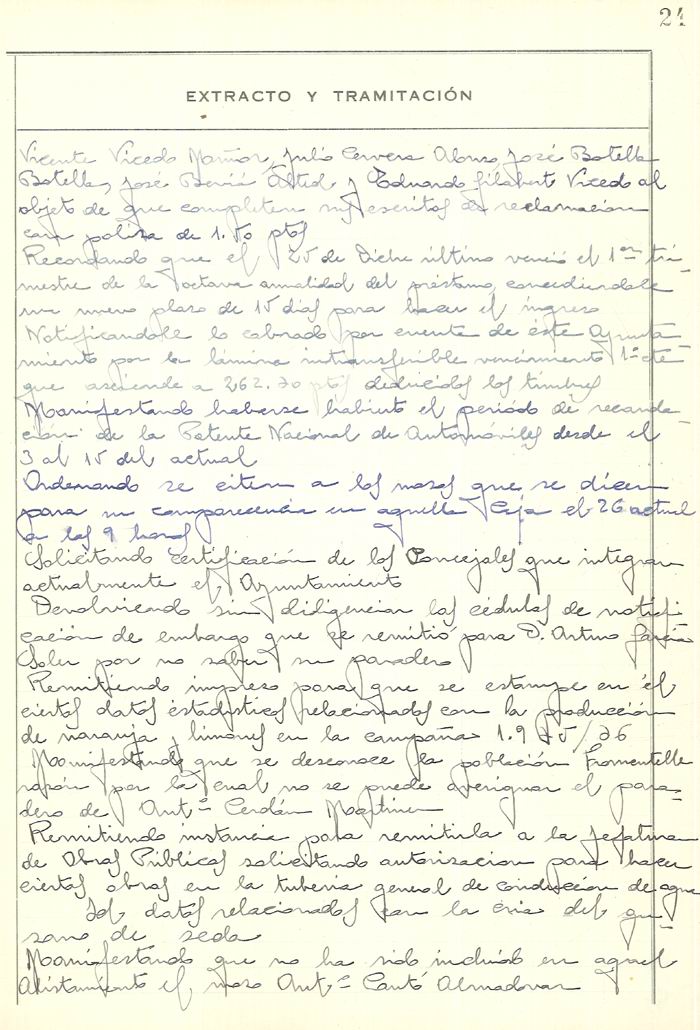 24
EXTRACTO Y TRAMITACIÓN
Vicente Vicedo Mañor, Julio Cervera Alonso, José Botella
Botella, José Alted y Eduardo Gilabert Vicedo al
objeto de que completen sus escritos de reclamación
con poliza de 1.50 pts
Recordando que el 25 de Dicbre último venció el 1er tri-
mestre de la octava anualidad del préstamo concediendole
un nuevo plazo de 15 dias para hacer el ingreso
Notificandole lo cobrado por cuenta de éste Ayunta-
miento por la lámina intransferible vencimiento 1º cte
que asciende a 262.70 pts deducidos los timbres
Manifestando haberse habierto el periódo de recauda-
ción de la Patente Nacional de Automóviles desde el
3 al 15 del actual
Ordenando se citen a los mozos que se dicen
para su comparecencia en aquella Caja el 26 actual
a las 9 horas
Solicitando certificación de los Concejales que integran
actualmente el Ayuntamiento
Devolviendo sin didigenciar las cédulas de notifi-
cación de embargo que se remitió para D. Arturo García
Soler por no saber su paradero
Remitiendo impreso para que se estampe en él
ciertos datos estadisticos relacionados con la producción
de naranja y limones en la campaña 1.935/36
Manifestando que se desconoce la población Fromentelle
razón por la cual no se puede averiguar el para-
dero de Antº Cerdán Martinez
Remitiendo instancia para remitirla a la Jefatura
de Obras Públicas solicitando autorizacion para hacer
ciertas obras en la tuberia general de conducción de agua
Id. datos relacionados con la cria del gu-
sano de seda
Manifestando que no ha sido incluido en aquel
Alistamiento el mozo Antº Cantó Almadovar